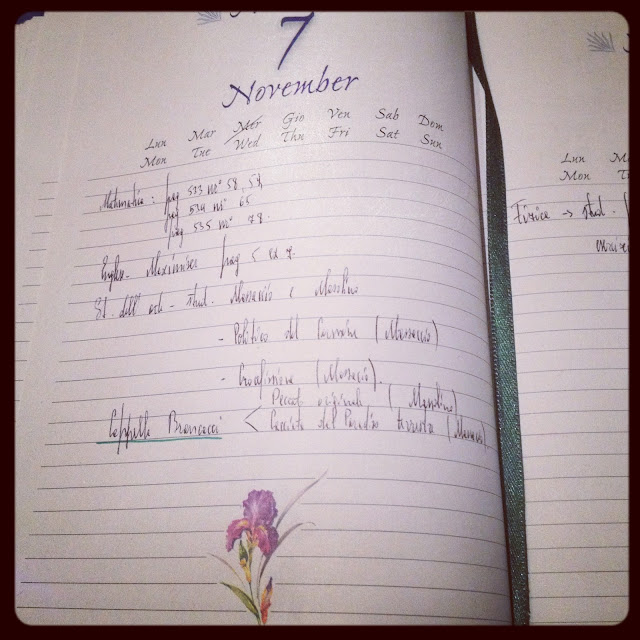 7
November
Lun Mar Mer Gio Ven Sab Dom
Mon Tue Wed Thu Fri Sat Sun
Matematica: pag 533 n° 58, 59,
pag 534 n° 65
pag 535 n° 78.
Inglese - Maximiser pag 5 ex 7.
St dell'arte - stud. Masaccio e Masolino
- Polittico del Carmine (Masaccio)
- Crocifissione (Masaccio).
Peccato originale (Masolino)
Cappella Brancacci < Cacciata dal Paradiso terrestre (Masaccio)
Lun
Mon
Fisica → stud.